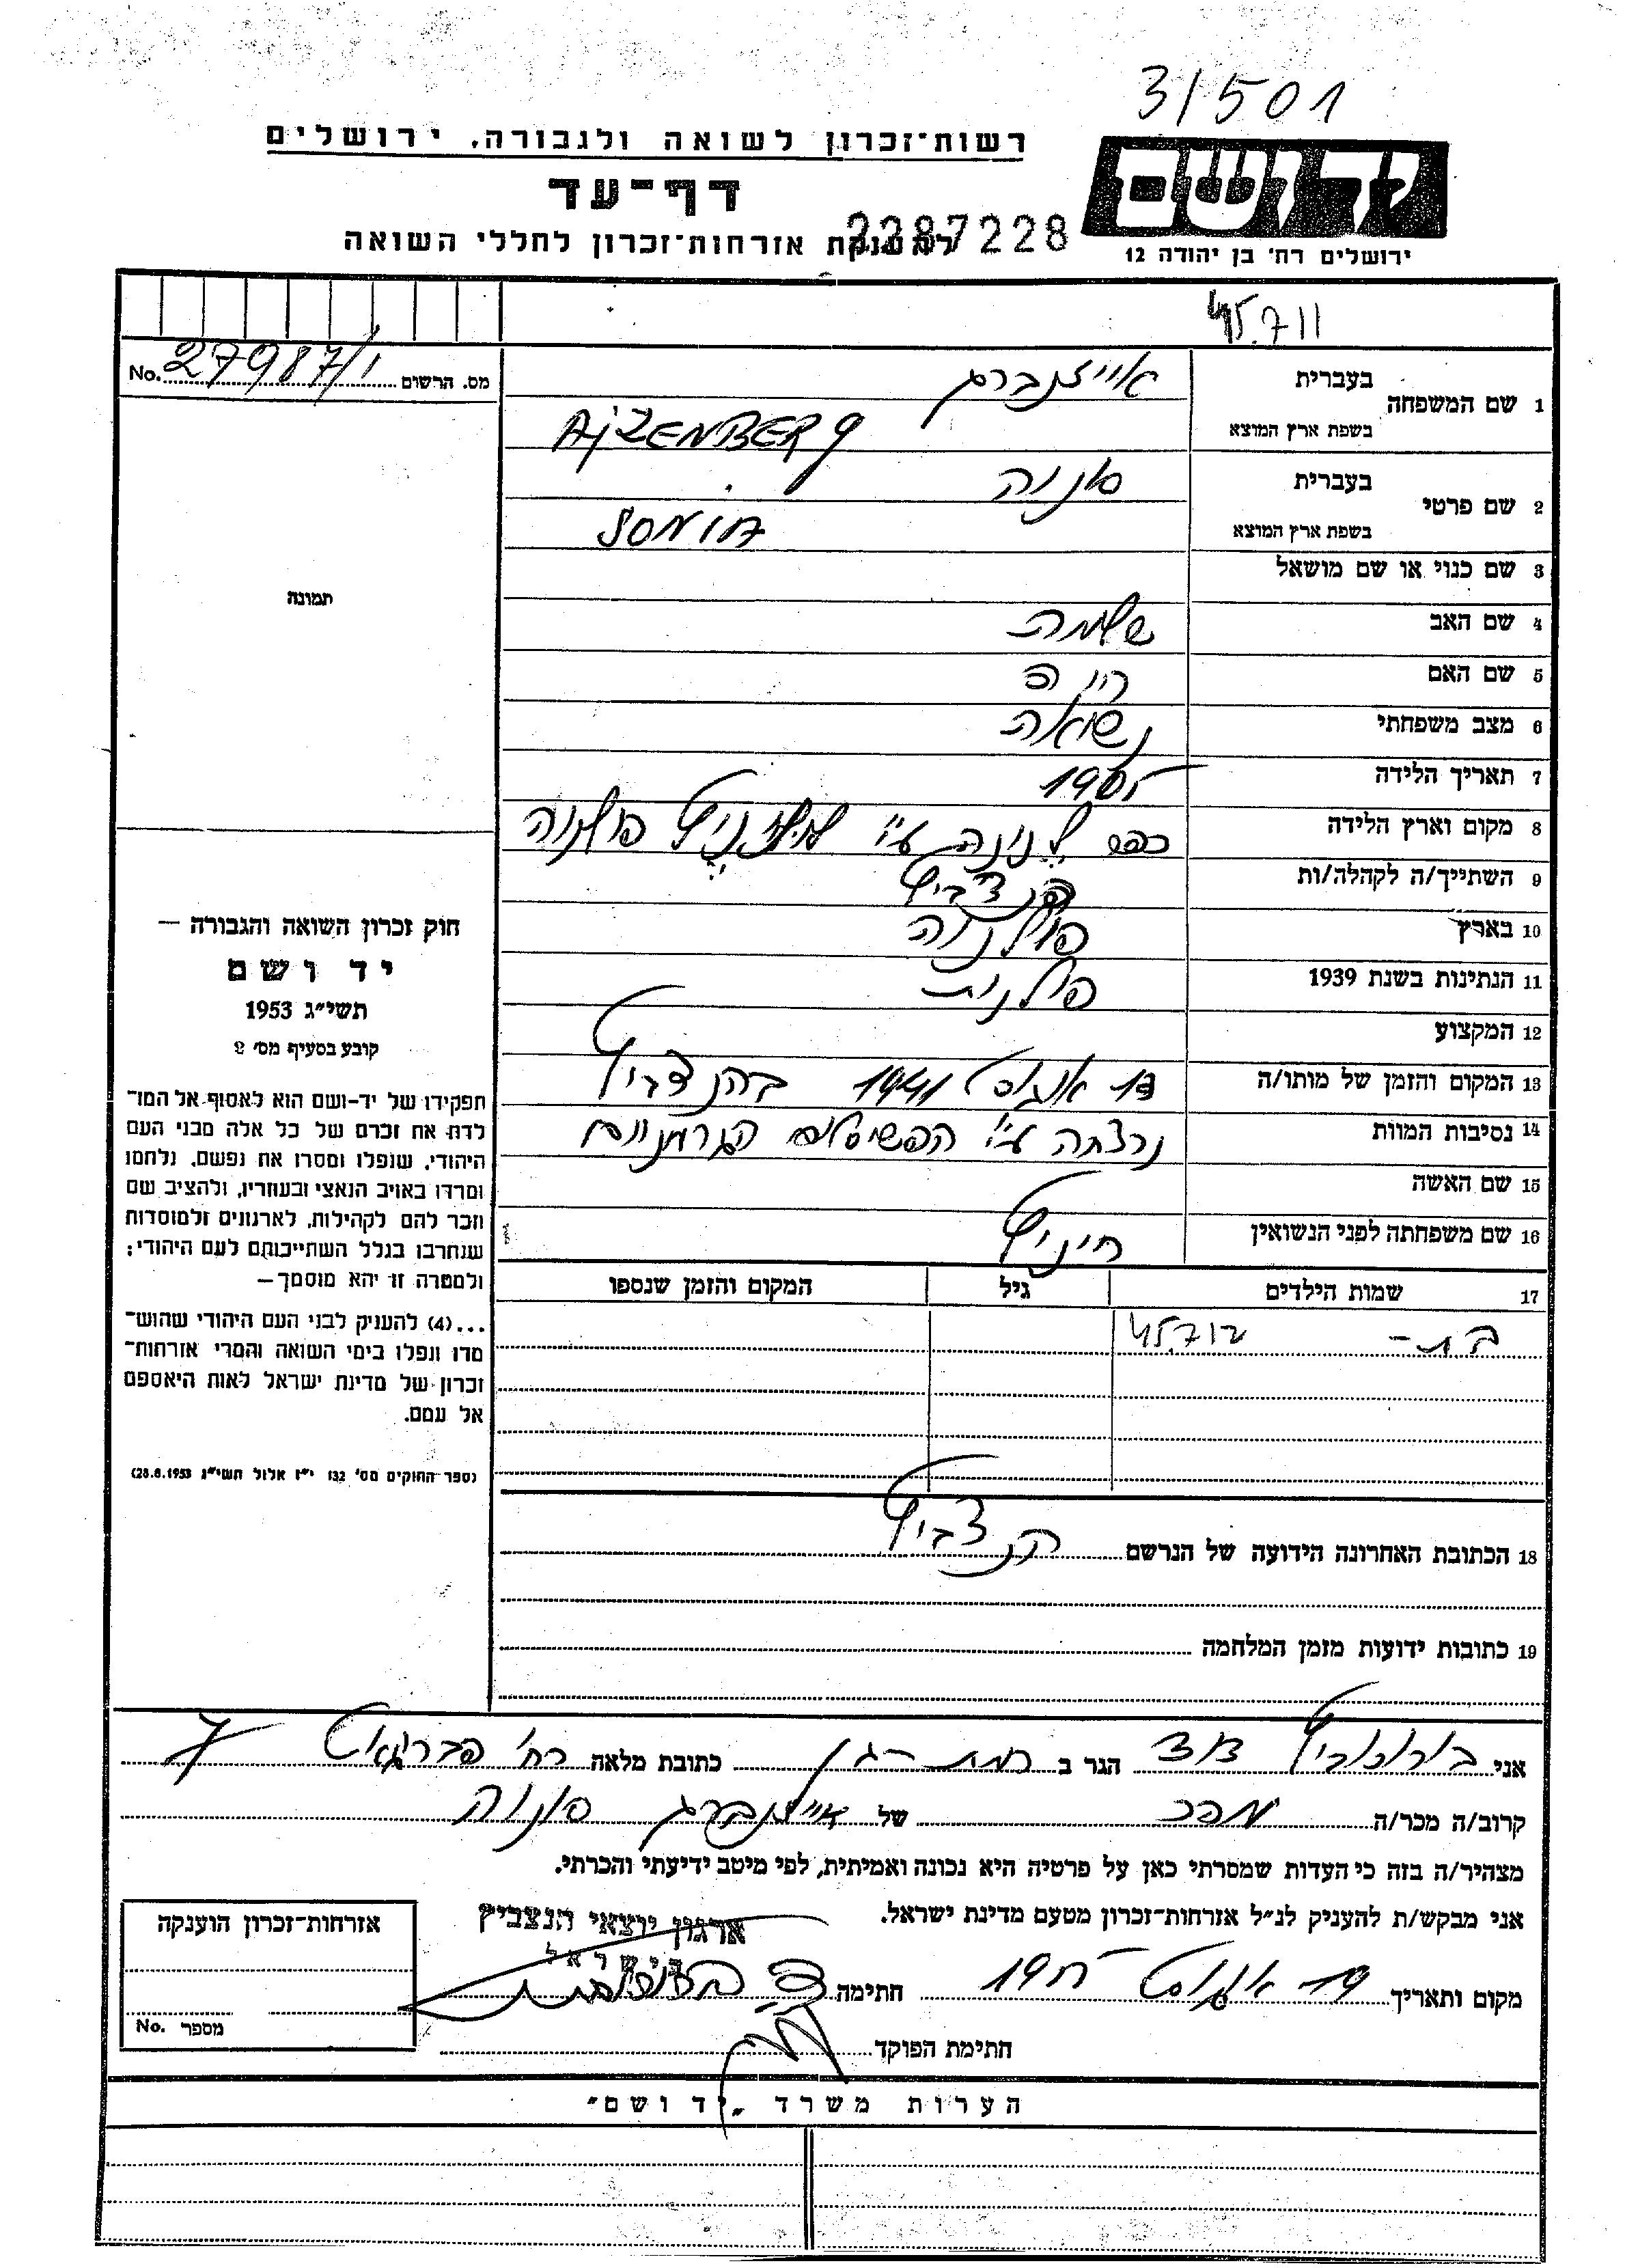 31501
ידושם
ירושלים רח' בן יהודה 12
רשות־זכרון לשואה ולגבורה, ירושלים
דף־עד
להענקת אזרחות־זכרון לחללי השואה
2287228
מס. הרשום 27987/י No.
1 שם המשפחה בעברית אייזנברג
בשפת ארץ המוצא AJZENBERG
2 שם פרטי בעברית סוניה
בשפת ארץ המוצא SONIA
3 שם כנוי או שם מושאל
4 שם האב שלמה
5 שם האם
6 מצב משפחתי נשואה
7 תאריך הלידה 1905
8 מקום וארץ הלידה כפר ע"י פולניה
9 השתייך/ה לקהלה/ות הנצביץ
10 בארץ פולניה
11 הנתינות בשנת 1939 פולנית
12 המקצוע
13 המקום והזמן של מותו/ה אוגוסט 1941 בהנצביץ
14 נסיבות המוות נרצחה ע"י הפשיסטים הגרמניים
15 שם האשה
16 שם משפחתה לפני הנשואין
17 שמות הילדים גיל המקום והזמן שנספו
בת -
תמונה
חוק זכרון השואה והגבורה —
יד ושם
תשי״ג 1953
קובע בסעיף מס׳ 2
תפקידו של יד-ושם הוא לאסוף אל המו־
לדת את זכרם של כל אלה מבני העם
היהודי, שנפלו ומסרו את נפשם, נלחמו
ומרדו באויב הנאצי ובעוזריו, ולהציב שם
וזכר להם לקהילות, לארגונים ולמוסדות
שנחרבו בגלל השתייכותם לעם היהודי;
ולמטרה זו יהא מוסמך —
...(4) להעניק לבני העם היהודי שהוש־
מדו ונפלו בימי השואה והמרי אזרחות־
זכרון של מדינת ישראל לאות היאספם
אל עמם.
(ספר החוקים מס׳ 132 י״ז אלול תשי״ג 28.8.1953)
18 הכתובת האחרונה הידועה של הנרשם הנצביץ
19 כתובות ידועות מזמן המלחמה
אני דוד הגר ב רמת-גן כתובת מלאה רח' 7
קרוב/ה מכר/ה מכר של אייזנברג סוניה
מצהיר/ה בזה כי העדות שמסרתי כאן על פרטיה היא נכונה ואמיתית, לפי מיטב ידיעתי והכרתי.
אני מבקש/ת להעניק לנ״ל אזרחות־זכרון מטעם מדינת ישראל.
ארגון יוצאי הנצביץ
בישראל
מקום ותאריך 19 אוגוסט חתימה
חתימת הפוקד
אזרחות־זכרון הוענקה
מספר No.
הערות משרד „יד ושם״